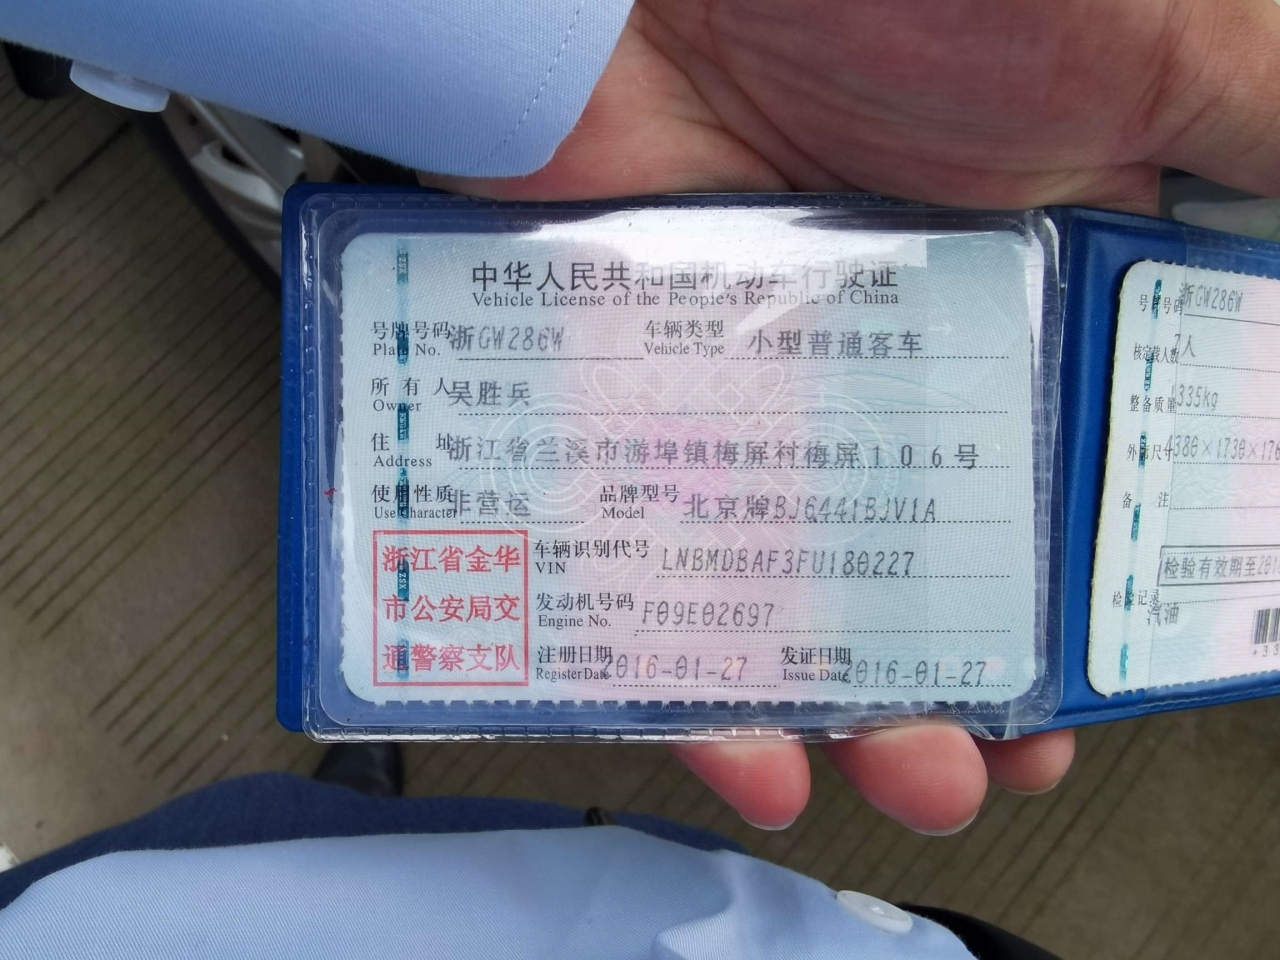 中华人民共和国机动车行驶证
Vehicle License of the People's Republic of China
号牌号码 浙GW286W 车辆类型 小型普通客车
Plate No. Vehicle Type
所有人 吴胜兵
Owner
住址 浙江省兰溪市游埠镇梅屏村梅屏106号
Address
使用性质 非营运 品牌型号 北京牌BJ6441BJV1A
Use Character Model
浙江省金华
市公安局交
通警察支队
车辆识别代号 LNBMDBAF3FU180227
VIN
发动机号码 F09E02697
Engine No.
注册日期 2016-01-27 发证日期 2016-01-27
Register Date Issue Date
号牌号码 浙GW286W
核定载人数 7人
整备质量 1335kg
外廓尺 4380×1730×176
备注
检验有效期至201
检验记录
汽油